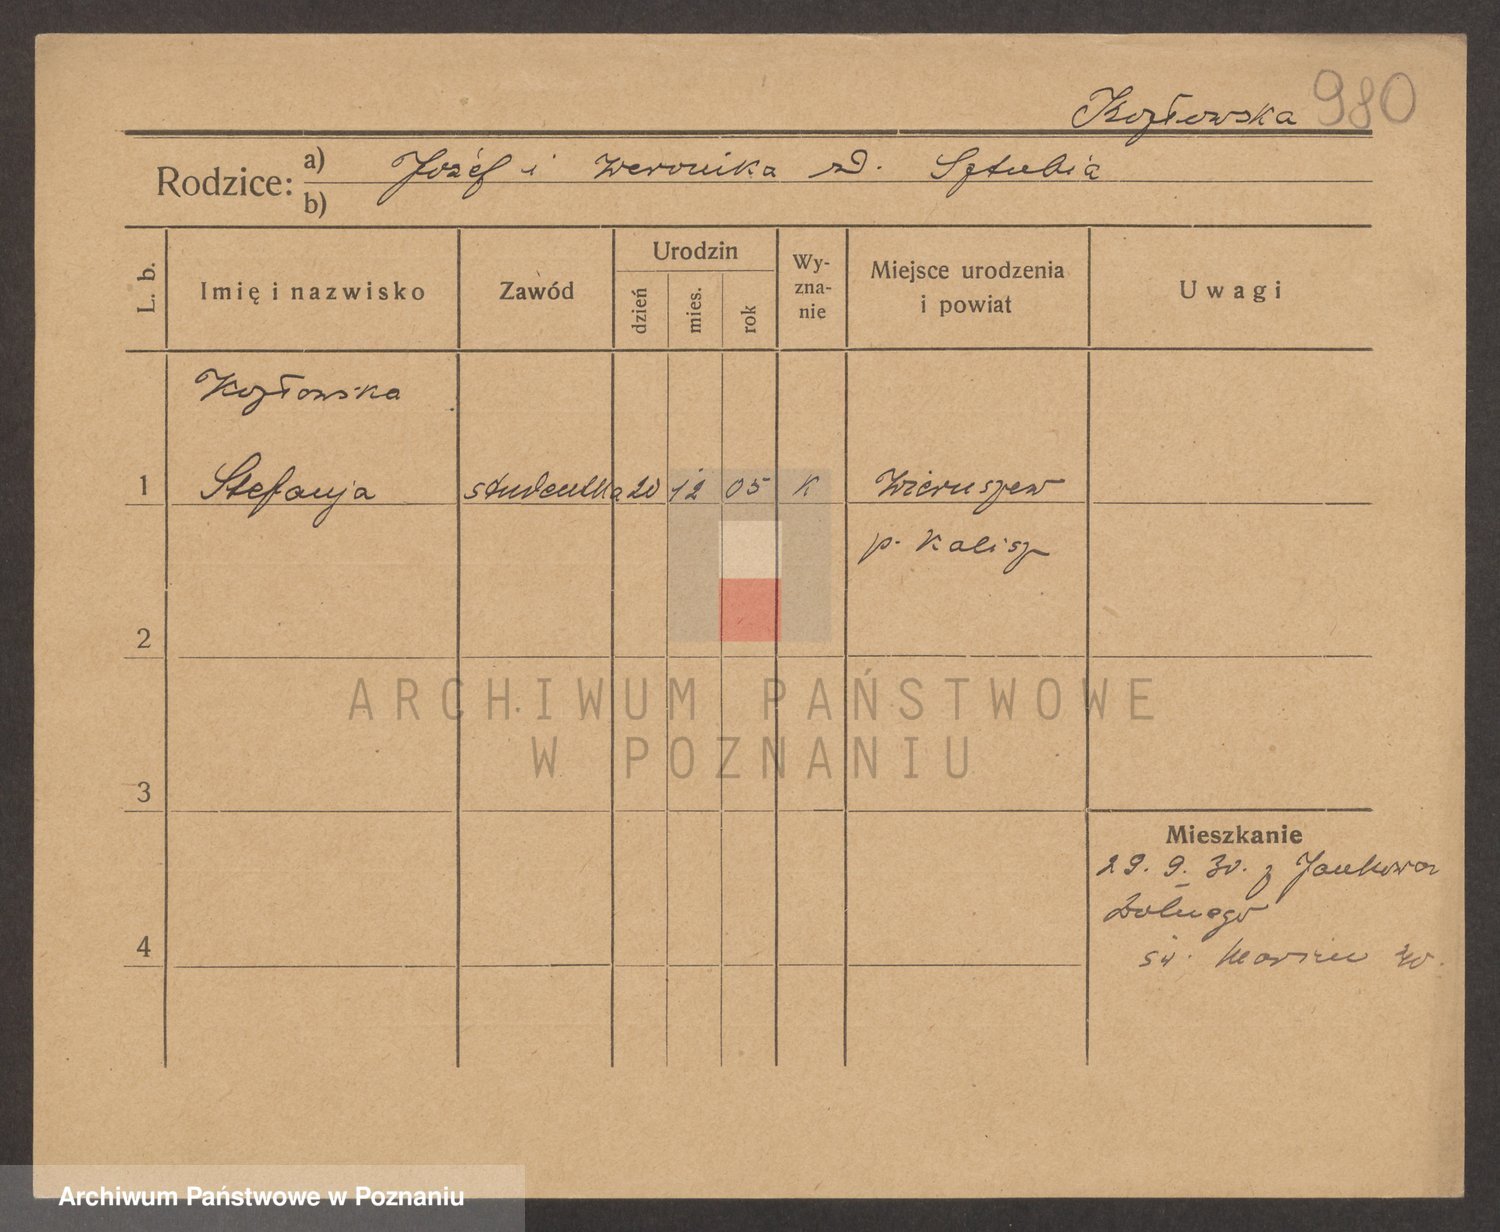 Kozłowska 980
Rodzice: a) Józef i Weronika zd. Sztubia
b)
L. b. Imię i nazwisko Zawód Urodzin dzień mies. rok Wy-zna-nie Miejsce urodzenia i powiat Uwagi
Kozłowska
1 Stefanja studentka 20 12 05 K Wieruszew
p. Kalisz
2
ARCHIWUM PAŃSTWOWE
W POZNANIU
3
Mieszkanie
29. 9. 30. z Jankowa
Dolnego
4
św. Marcin
Archiwum Państwowe w Poznaniu